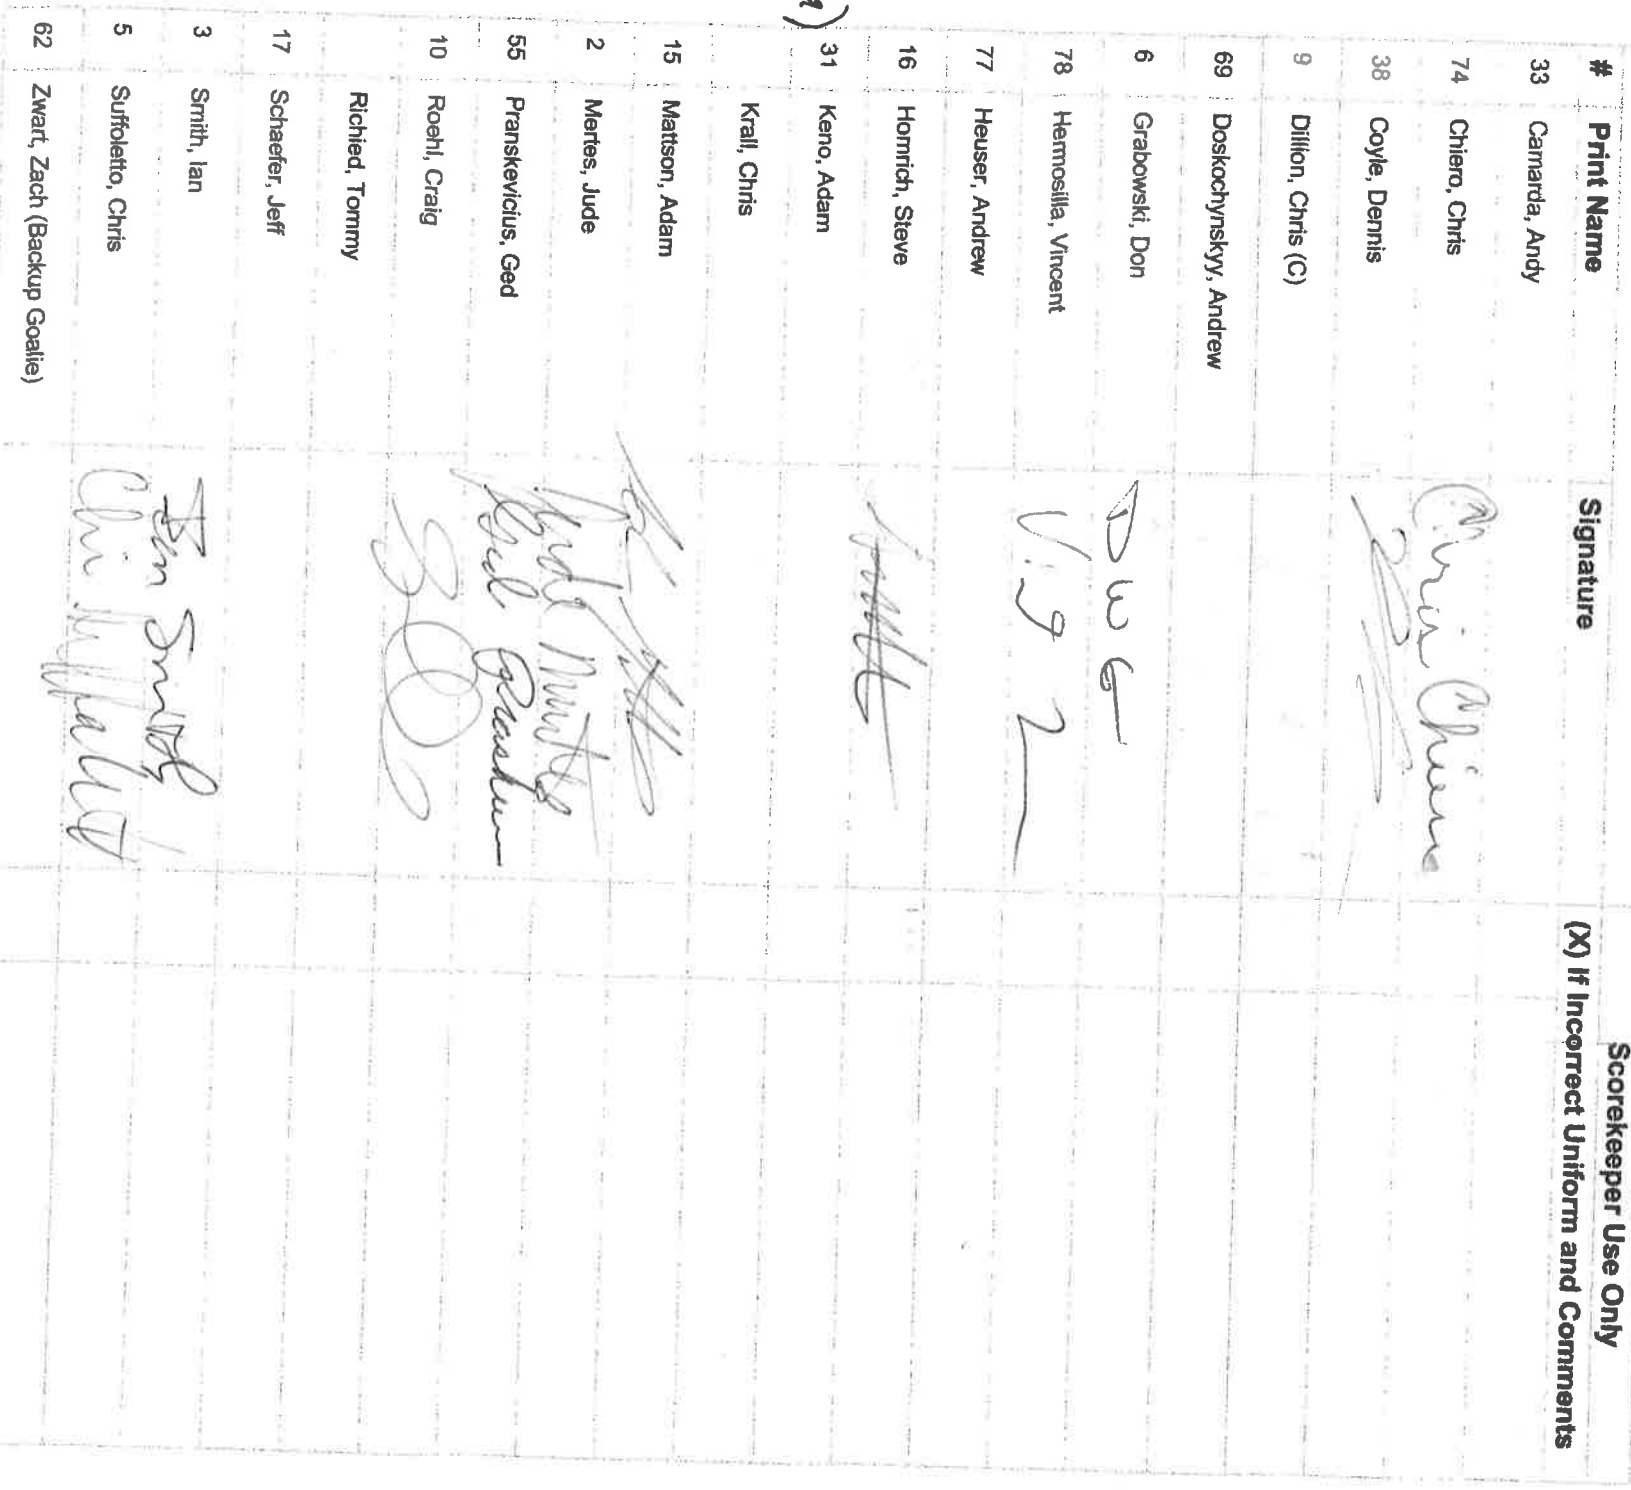 Scorekeeper Use Only
# Print Name Signature (X) If Incorrect Uniform and Comments
33 Camarda, Andy
74 Chiero, Chris Chris Chiero
38 Coyle, Dennis
9 Dillion, Chris (C)
69 Doskochynskyy, Andrew
6 Grabowski, Don DWG
78 Hermosilla, Vincent
77 Heuser, Andrew
16 Homrich, Steve
31 Keno, Adam
Krall, Chris
15 Mattson, Adam
2 Mertes, Jude Jude Mertes
55 Pranskevicius, Ged Ged
10 Roehl, Craig
Richied, Tommy
17 Schaefer, Jeff
3 Smith, Ian Ian Smith
5 Suffoletto, Chris
62 Zwart, Zach (Backup Goalie)